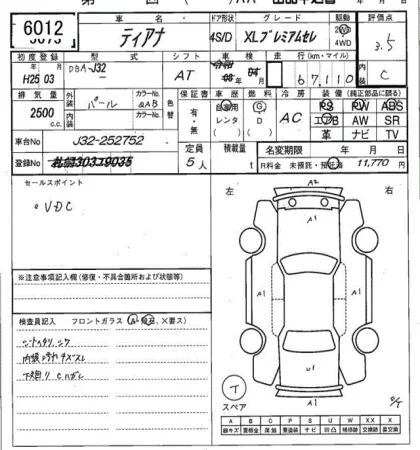 6012
車名 ティアナ
ドア形状 4S/D
グレード XLプレミアムセレ
駆動 2WD 4WD
評価点 3.5
初度登録 年 月 H25 03
型式 DBA-J32
シフト AT
車検 年 月
走行(km・マイル) 67,110
内装 C
排気量 2500 c.c.
外装 パール
カラーNo. QAB
色替
内装 カラーNo.
保証書 有・無
車歴 自家用 レンタ
燃料 G D
冷房 AC
装備(純正部品に限る)
PS PW ABS
エアB AW SR
革 ナビ TV
車台No J32-252752
登録No. 札幌303ろ9035
定員 5人
積載量 t
名変期限 年 月 日
R料金 未預託・預託済 11,770 円
セールスポイント
左 右
°VDC
A2
A1
A1 A1
※注意事項記入欄(修復・不具合箇所および状態等)
検査員記入 フロントガラス(A・飛石、×要ス)
シートヘタリ、シワ
下廻りCハガレ
U1
T
スペア
A1
O/T
A B C P S U W X XX
線キズ 要板金 腐食 要塗装 サビ 凹凸 補修跡 交換跡 要交換